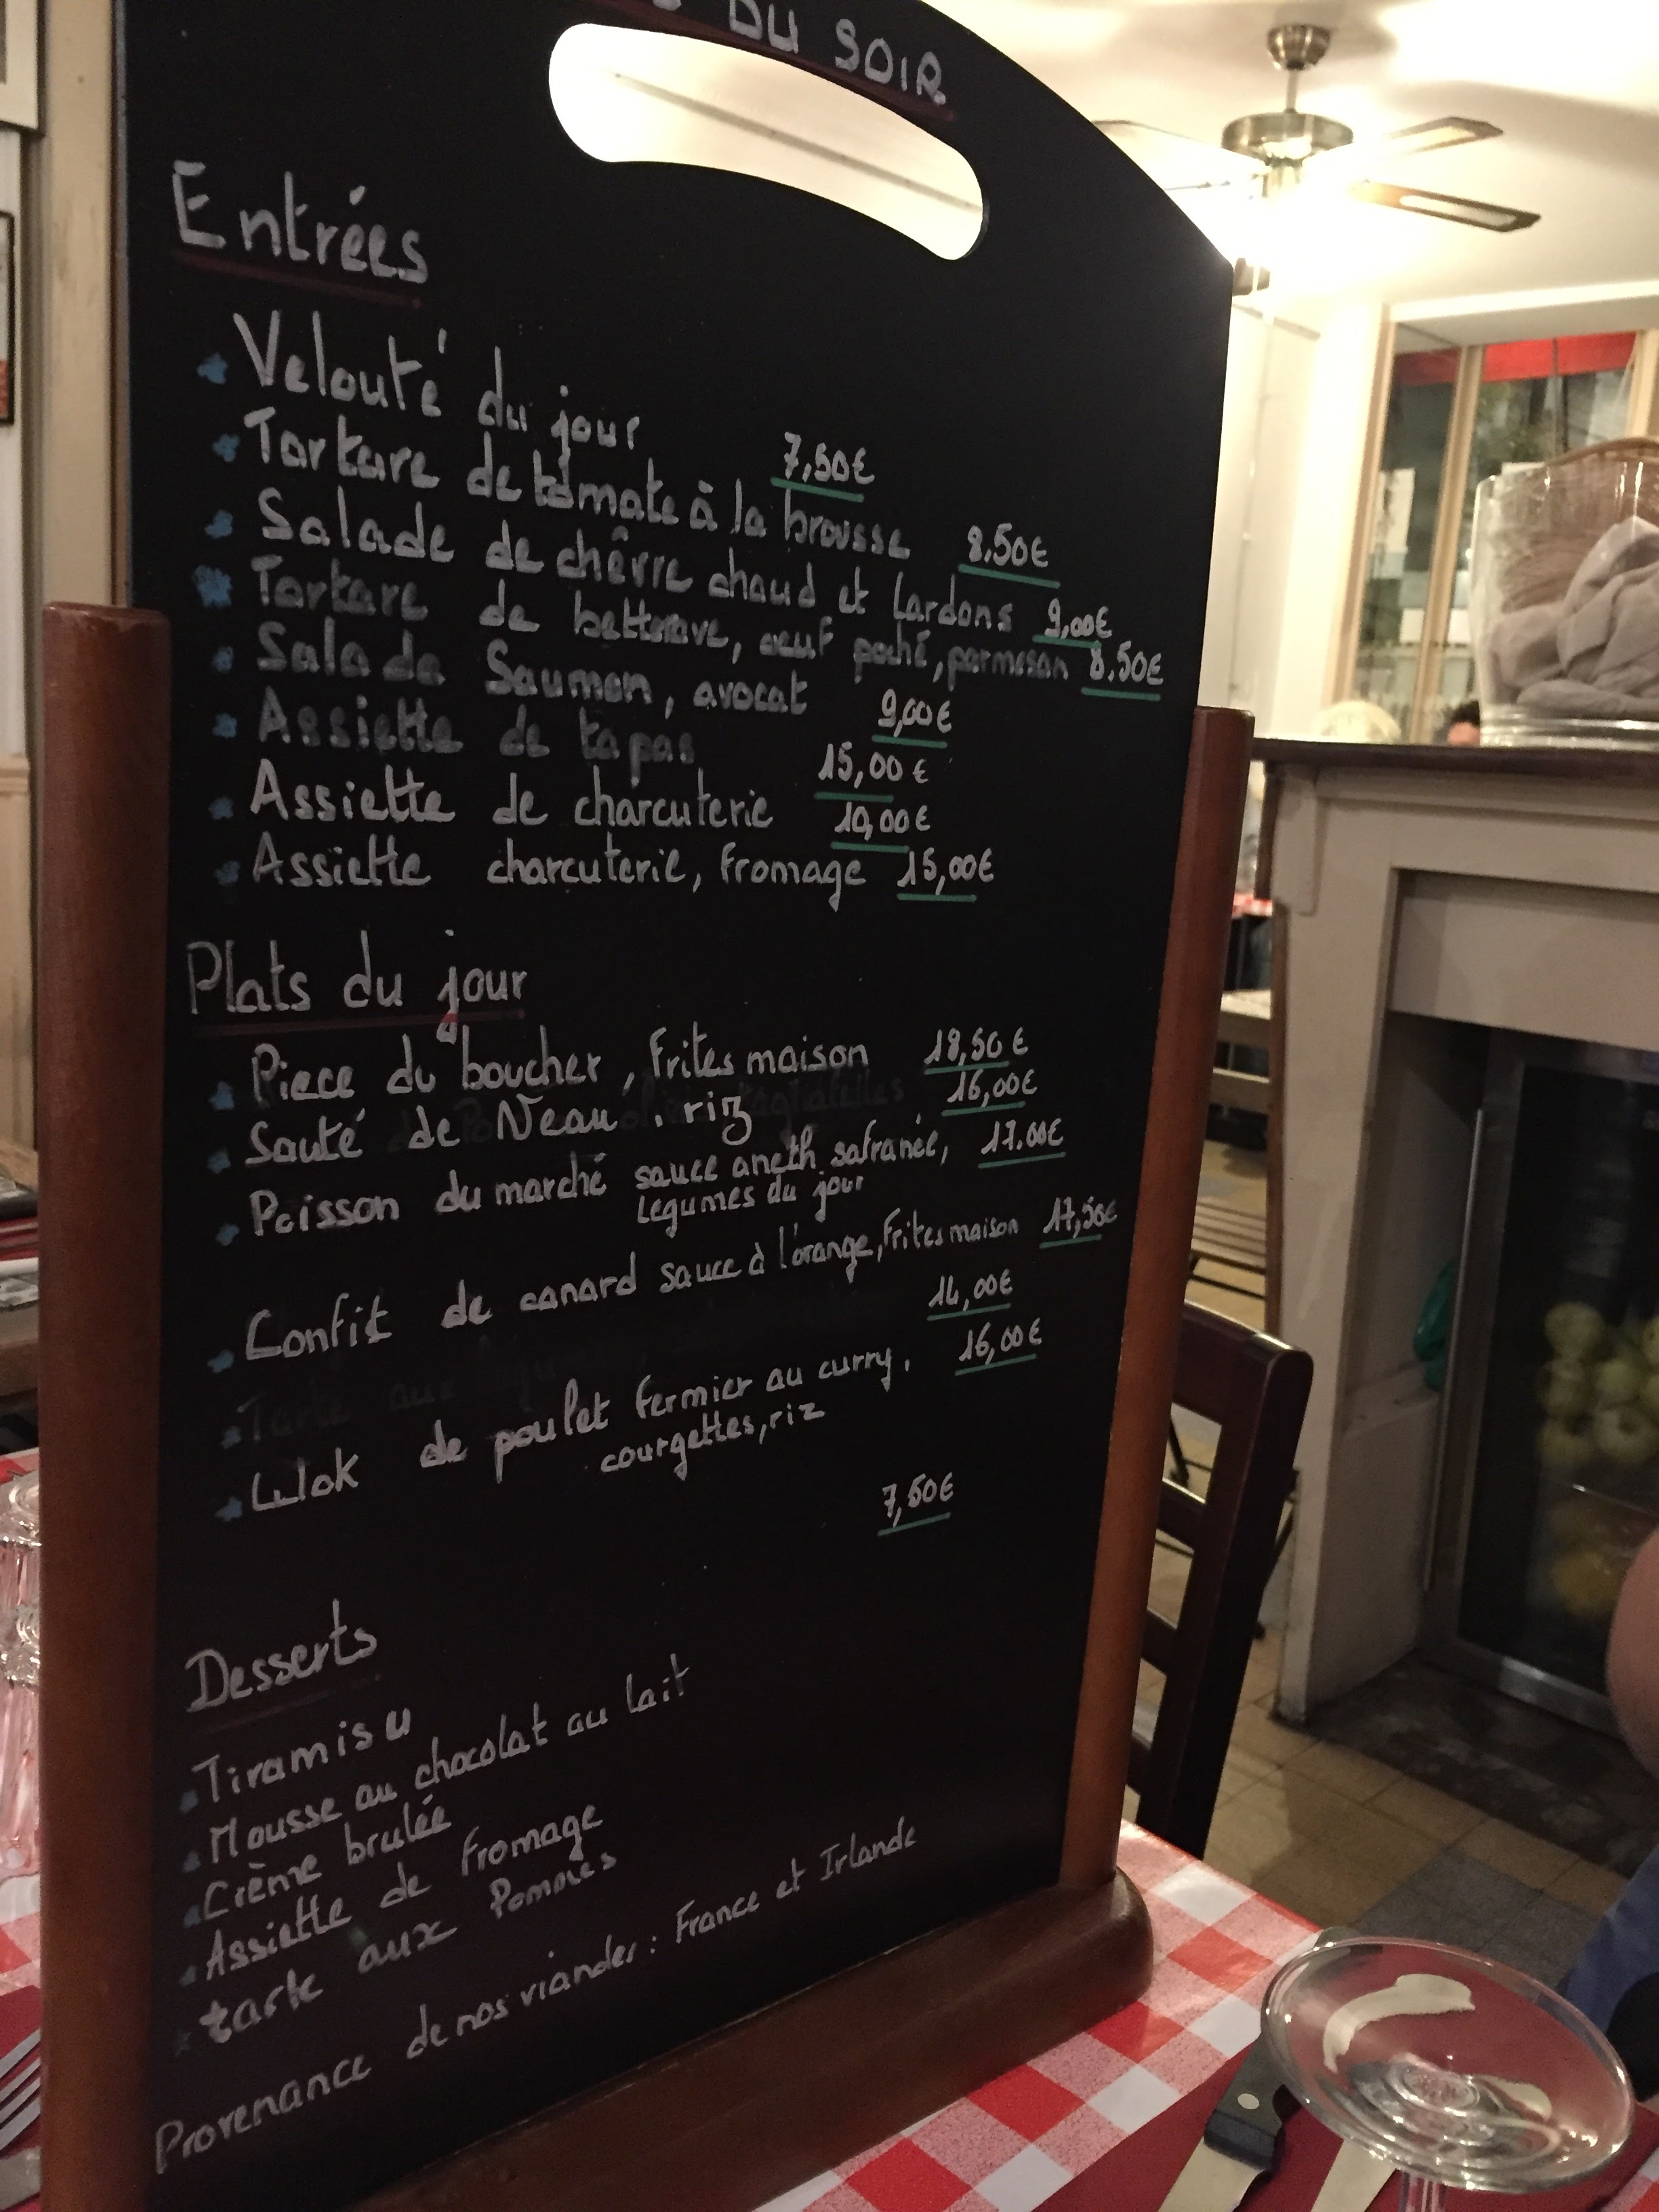 DU SOIR
Entrées
Velouté du jour 7,50€
Tartare de tomate à la brousse 8.50€
Salade de chêvre chaud et lardons 9,00€
Tartare de betterave, oeuf poché, parmesan 8.50€
Salade Saumon, avocat 9,00€
Assiette de tapas 15,00€
Assiette de charcuterie 10,00€
Assiette charcuterie, fromage 15,00€
Plats du jour
Piece du boucher, frites maison 18,50€
Sauté de Veau, riz 16,00€
Poisson du marché sauce aneth safranée, 17.00€
Legumes du jour
Confit de canard sauce à l'orange, frites maison 17,50€
Tarte aux 14,00€
Wok de poulet fermier au curry, 16,00€
courgettes, riz
7,50€
Desserts
Tiramisu
Mousse au chocolat au lait
Crème brulée
Assiette de fromage
tarte aux Pommes
Provenance de nos viandes: France et Irlande